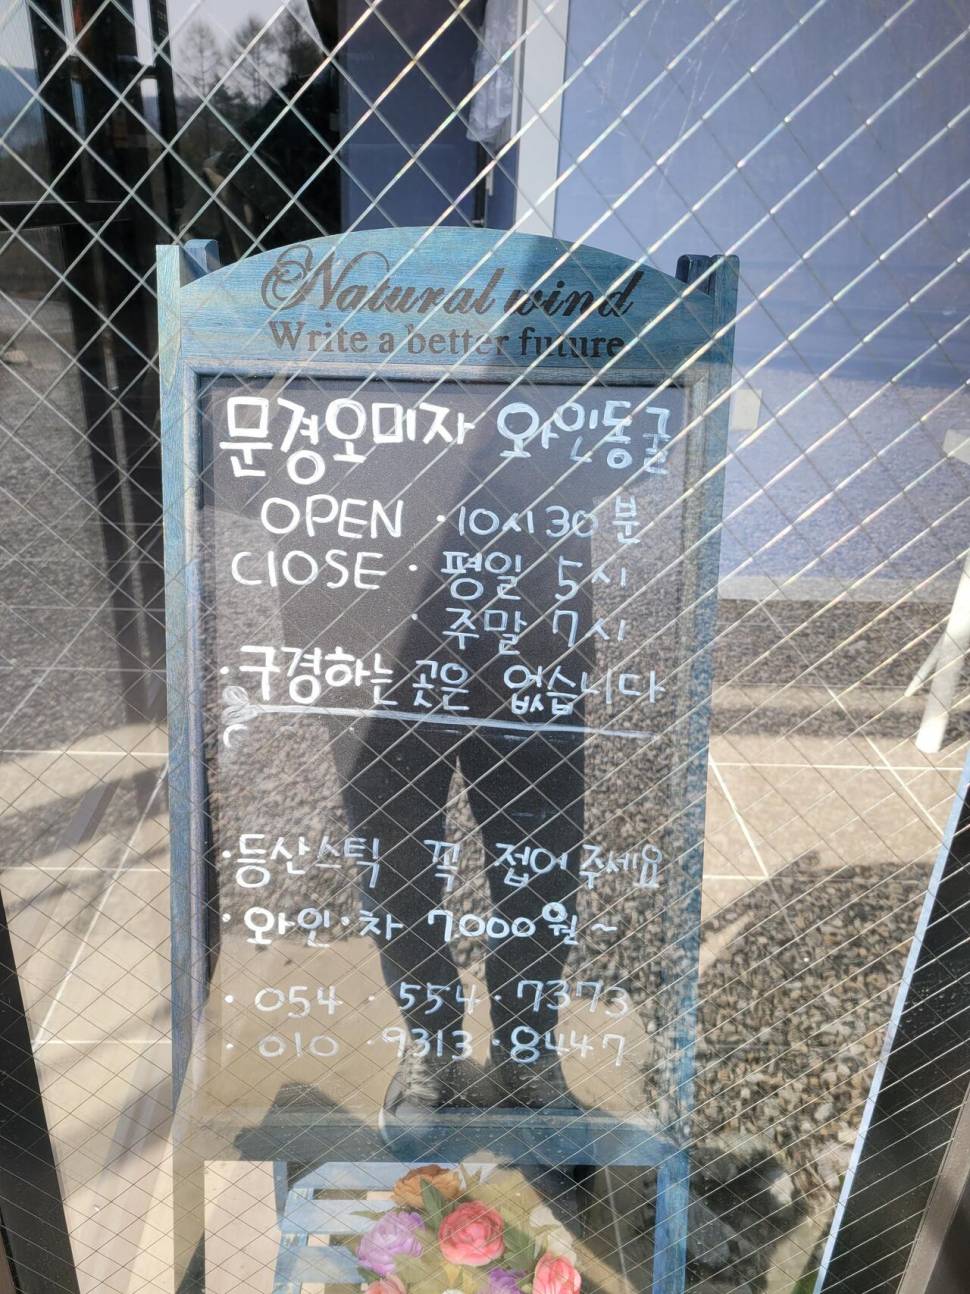 Natural wind
Write a better future
문경오미자 와인동굴
OPEN · 10시 30분
ClOSE · 평일 5시
· 주말 7시
· 구경하는 곳은 없습니다
· 등산스틱 꼭 접어주세요
· 와인·차 7000월~
· 054 · 554 · 7373
· 010 · 9313 · 8447